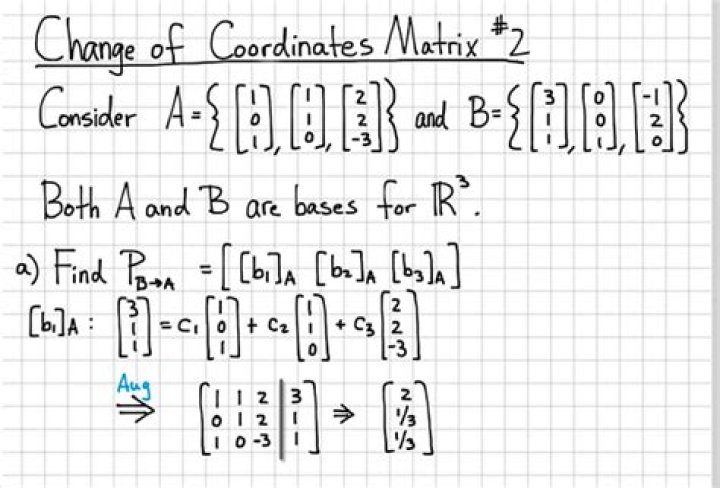 Change of Coordinates Matrix #2
Consider A = { [1 0 1], [1 1 0], [2 2 -3] } and B = { [3 1 1], [0 0 1], [-1 2 0] }
Both A and B are bases for ℝ³.
a) Find P_B→A = [ [b₁]_A [b₂]_A [b₃]_A ]
[b₁]_A : [3 1 1] = C₁ [1 0 1] + C₂ [1 1 0] + C₃ [2 2 -3]
Aug
⇒ [1 1 2 | 3
0 1 2 | 1
1 0 -3 | 1] ⇒ [2 1/3 1/3]